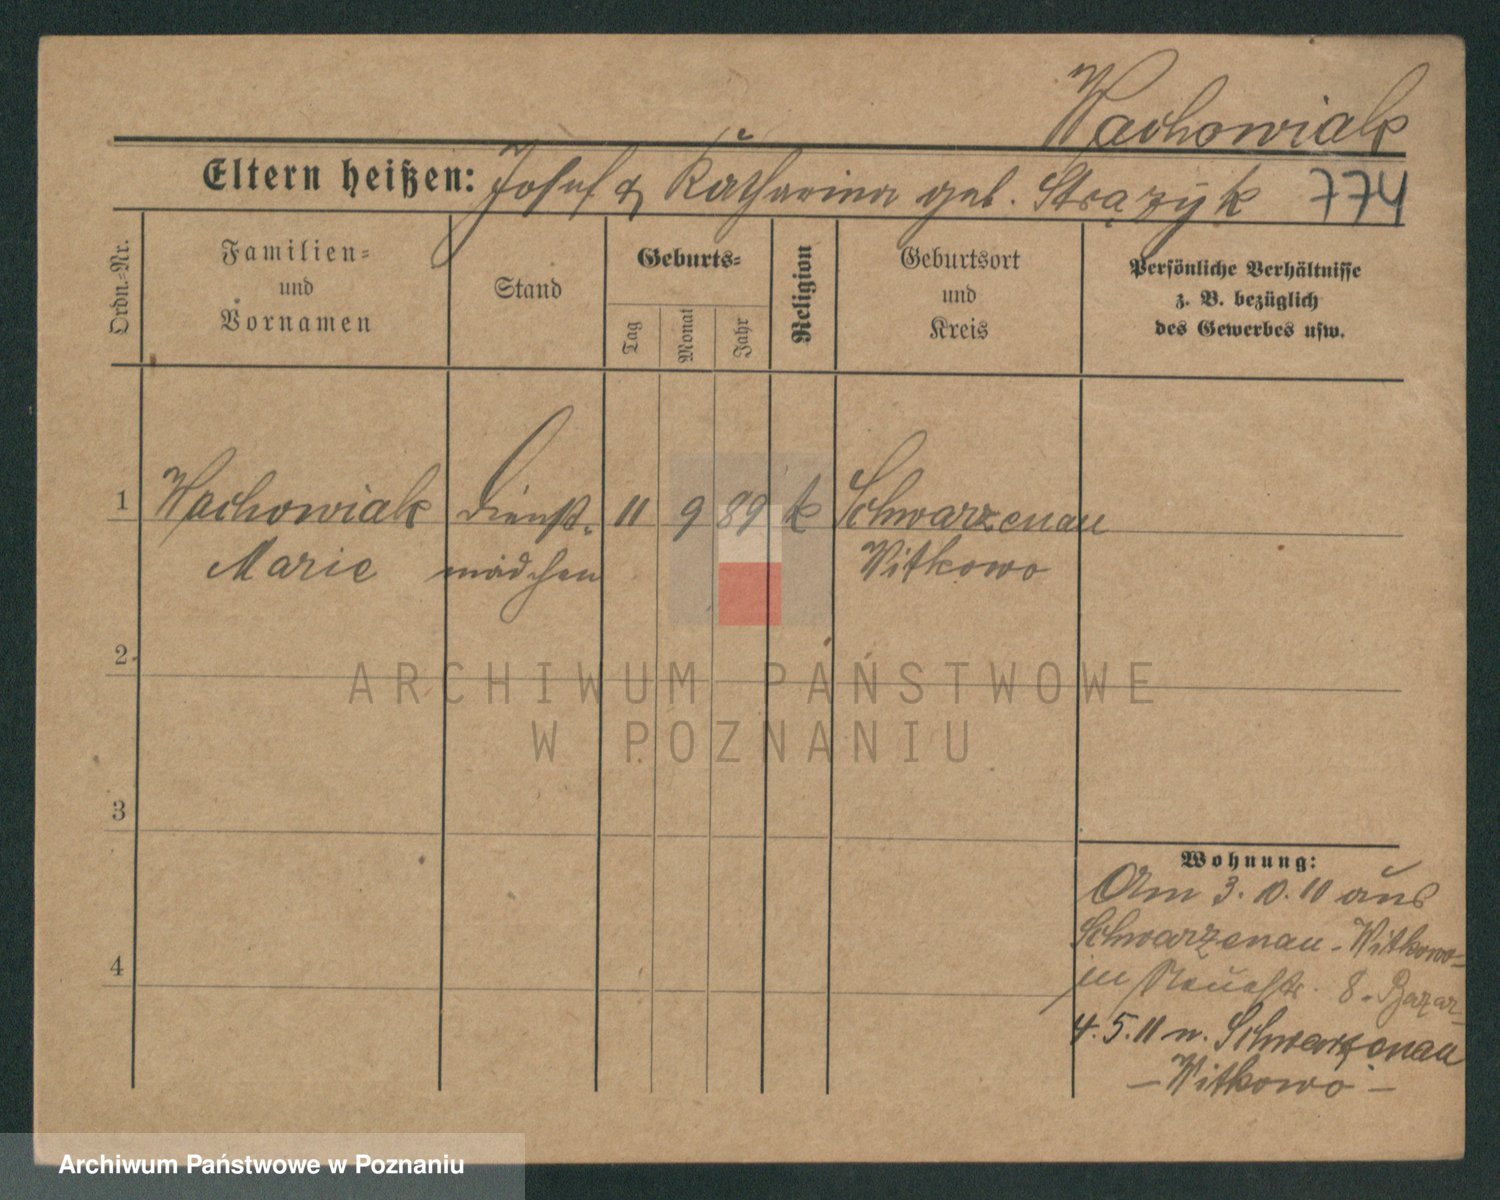 Wachowiak
Eltern heißen: Josef & Katharina geb. Strązyk 774
Ordn.-Nr.
Familien-
und
Vornamen
Stand
Geburts-
Tag
Monat
Jahr
Religion
Geburtsort
und
Kreis
Persönliche Verhältnisse
z. B. bezüglich
des Gewerbes usw.
1 Wachowiak Dienst- 11 9 89 k Schwarzenau
Marie mädchen Witkowo
2
3
4
Wohnung:
Am 3. 10. 10 aus
Schwarzenau - Witkowo-
in Neuestr. 8. Bazar-
4. 5. 11 n. Schwarzenau
- Witkowo -
ARCHIWUM PAŃSTWOWE
W POZNANIU
Archiwum Państwowe w Poznaniu